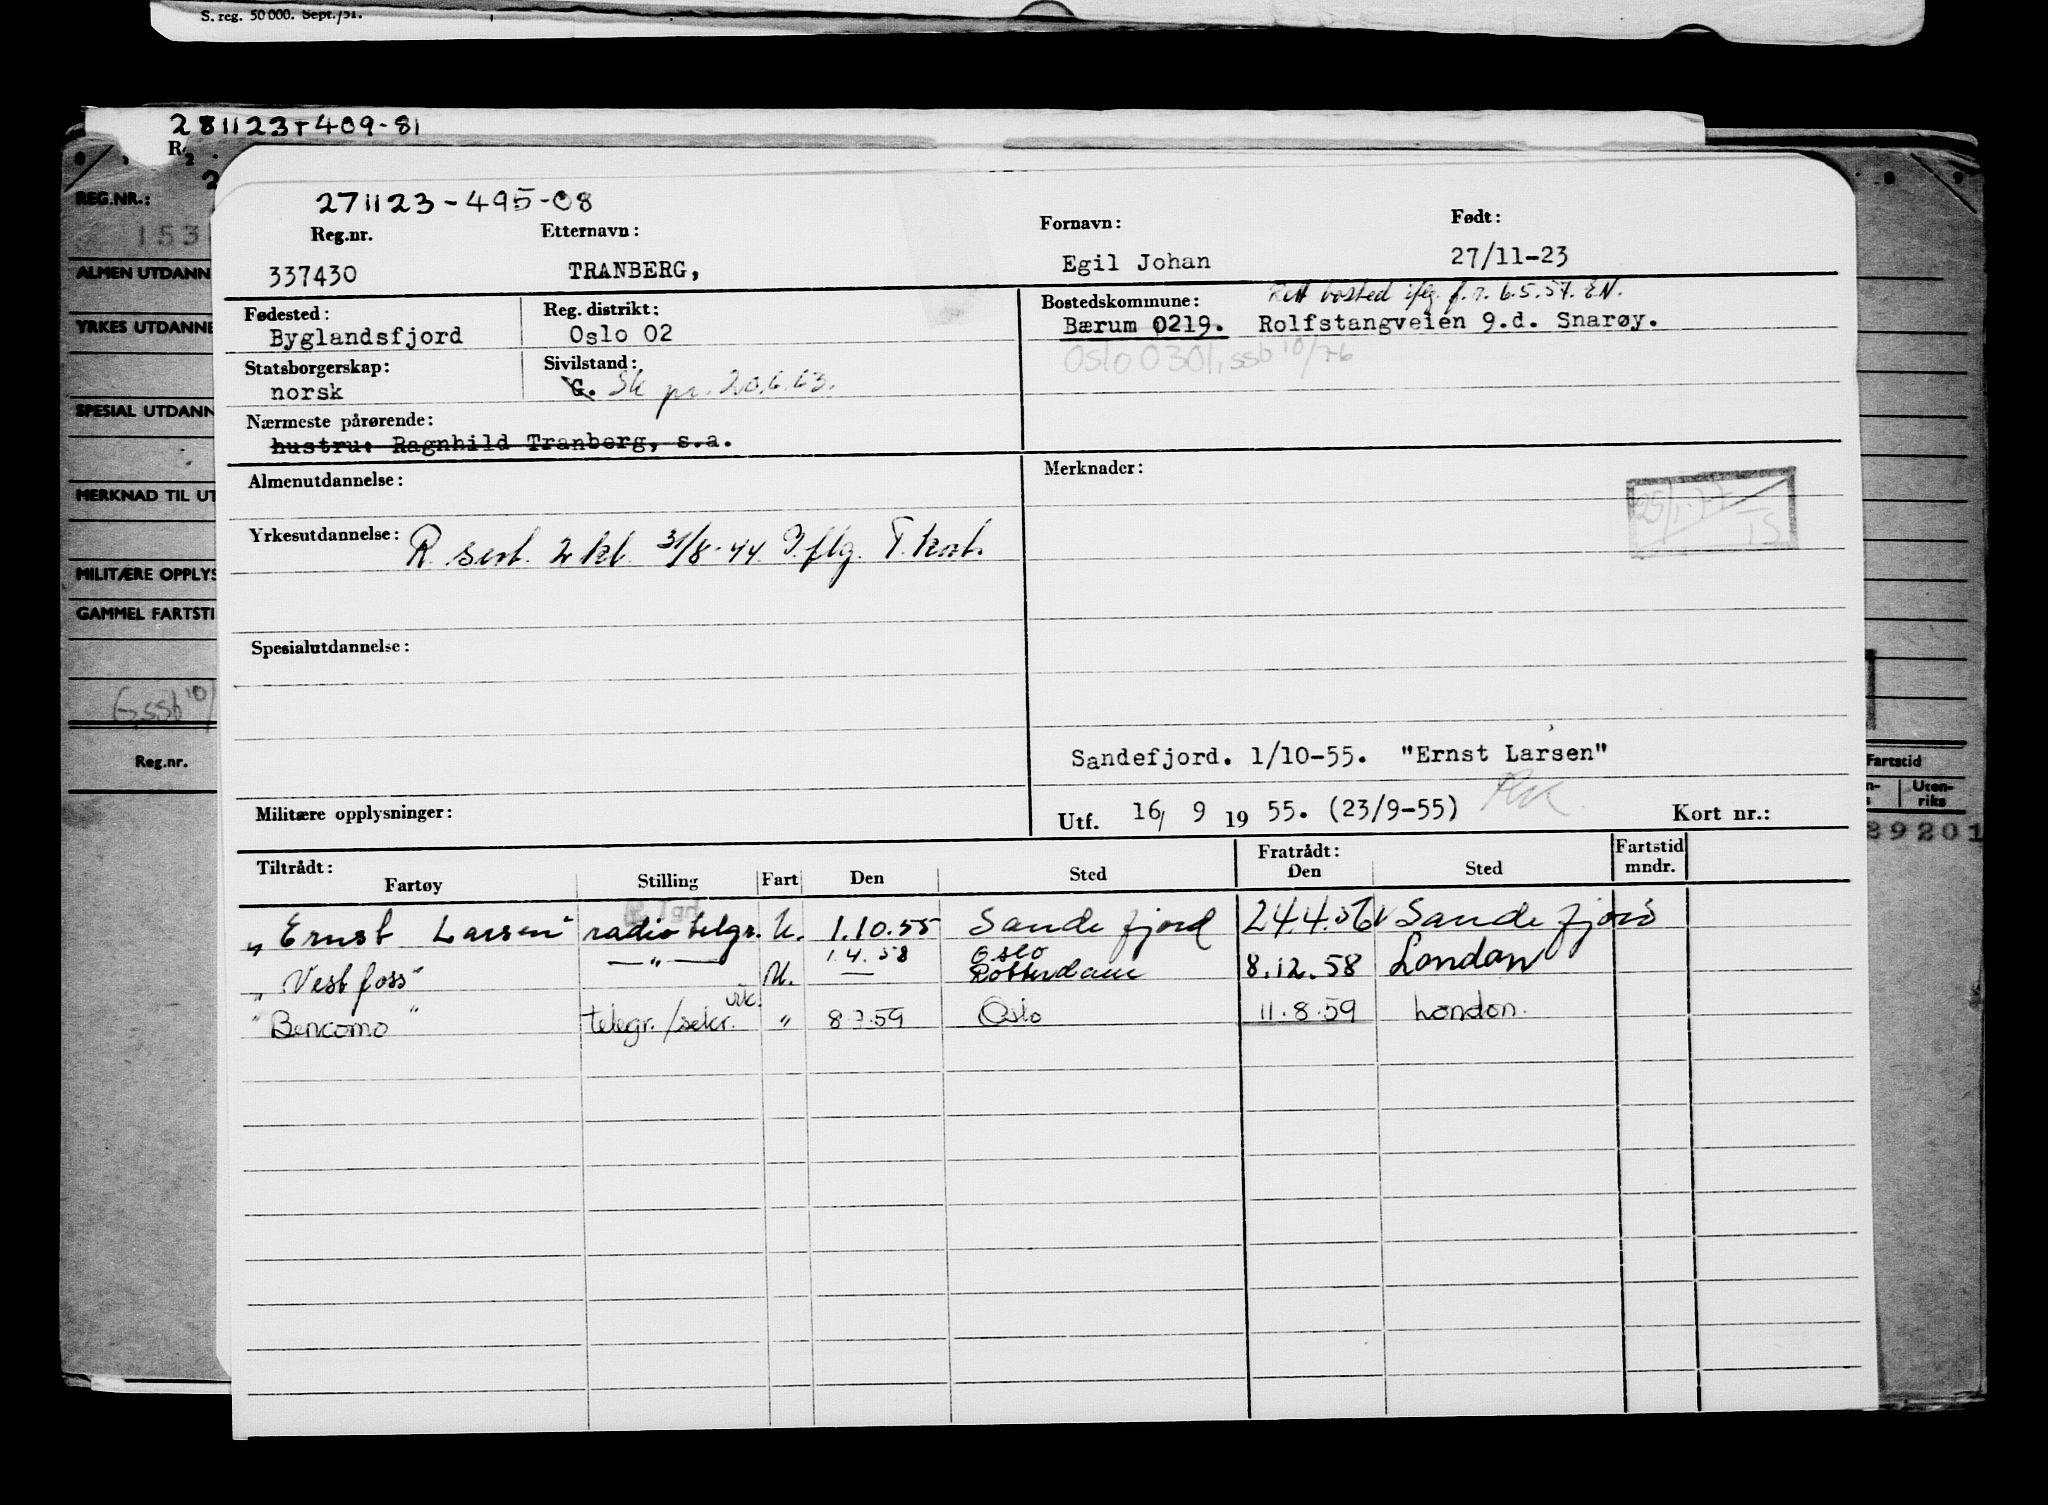 S. reg. 50 000. Sept./51.
281123+409-81
REG.NR.:
153
ALMEN UTDANN
YRKES UTDANNE
SPESIAL UTDANN
MERKNAD TIL UT
MILITÆRE OPPLYS
GAMMEL FARTSTI
Reg.nr.
271123-495-08
Reg.nr. Etternavn: Fornavn: Født:
337430 TRANBERG, Egil Johan 27/11-23
Fødested: Reg. distrikt: Bostedskommune: Rett bosted iflg. f.r. 6.5.57. EN.
Byglandsfjord Oslo 02 Bærum 0219. Rolfstangveien 9.d. Snarøy.
Oslo 0301, ssb 10/76
Statsborgerskap: Sivilstand:
norsk G. Sk pr. 20.6.63.
Nærmeste pårørende:
hustru: Ragnhild Tranberg, s.a.
Almenutdannelse: Merknader:
25/1-77
TS
Yrkesutdannelse: R. sert. 2 kl. 31/8-44 Iflg. T. kort.
Spesialutdannelse:
Sandefjord. 1/10-55. "Ernst Larsen"
Militære opplysninger: Utf. 16/ 9 19 55. (23/9-55) Kort nr.:
Fartstid
Uten-
riks
89201
Tiltrådt: Fratrådt: Fartstid
Fartøy Stilling Fart Den Sted Den Sted mndr.
"Ernst Larsen" radiotelgr. U. 1.10.55 Sandefjord 24.4.56 Sandefjord
1.4.58 Oslo
"Vestfoss" —"— U. — Rotterdam 8.12.58 London
vik.
"Bencomo" telegr./sekr. " 8.7.59 Oslo 11.8.59 London.